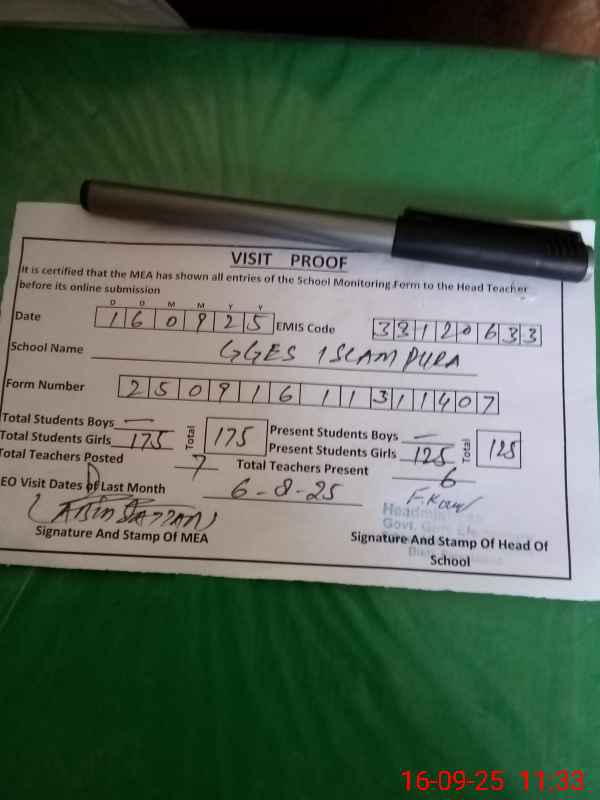 VISIT PROOF
It is certified that the MEA has shown all entries of the School Monitoring Form to the Head Teacher
before its online submission
D D M M Y Y
Date 1 6 0 9 2 5 EMIS Code 3 3 1 2 0 6 3 3
School Name GGES ISLAMPURA
Form Number 2 5 0 9 1 6 1 1 3 1 1 4 0 7
Total Students Boys — Total 175 Present Students Boys — Total 125
Total Students Girls 175 Present Students Girls 125
Total Teachers Posted 7 Total Teachers Present 6
EO Visit Dates of Last Month 6-8-25
F.Kour
Govt.
Signature And Stamp Of MEA
Signature And Stamp Of Head Of
School
16-09-25 11:33